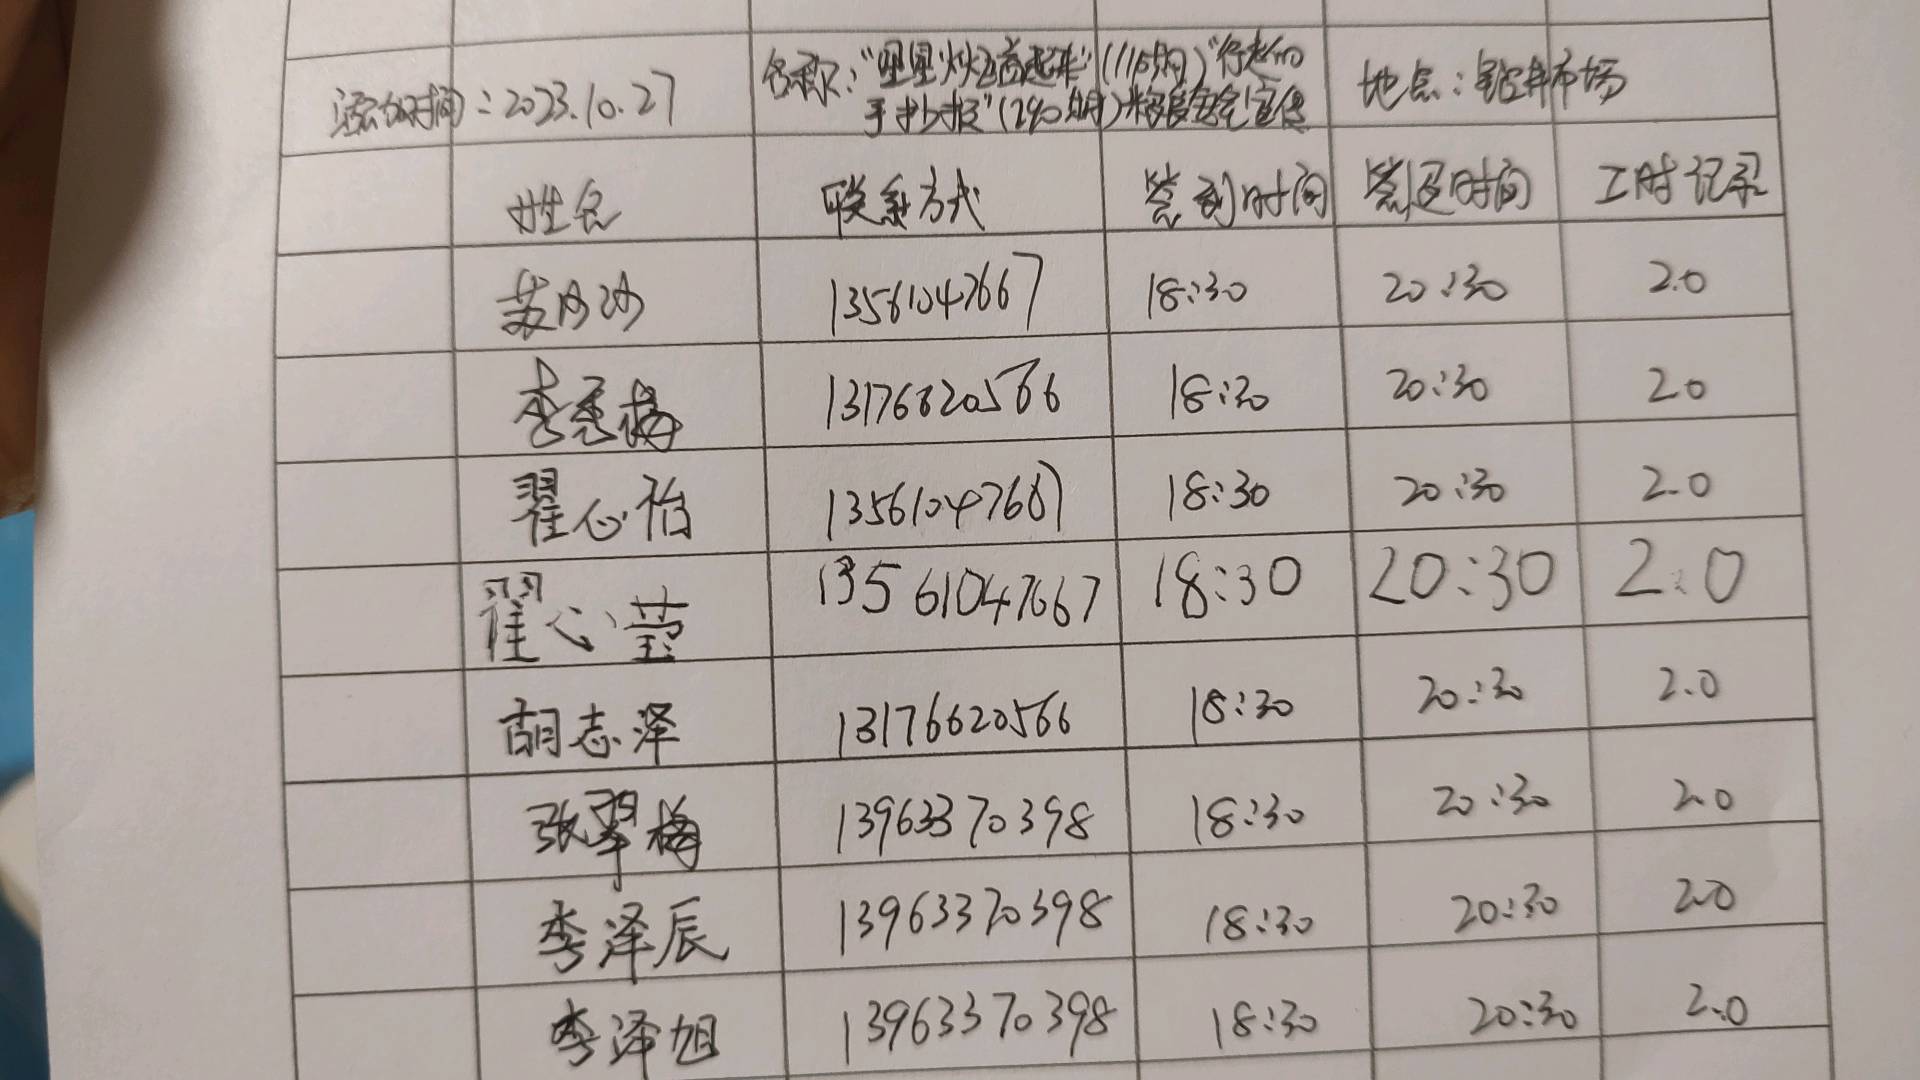 活动时间：2023.10.27 名称："星星火之高起来"(115期)"行走的 地点：钻井市场
手抄报"(290期)粮食安全宣传
姓名 联系方式 签到时间 签退时间 工时记录
13561047667 18:30 20:30 2.0
李秀梅 13176620566 18:30 20:30 2.0
翟心怡 13561047667 18:30 20:30 2.0
翟心莹 13561047667 18:30 20:30 2.0
胡志泽 13176620566 18:30 20:30 2.0
张翠梅 13963370398 18:30 20:30 2.0
李泽辰 13963370398 18:30 20:30 2.0
李泽旭 13963370398 18:30 20:30 2.0